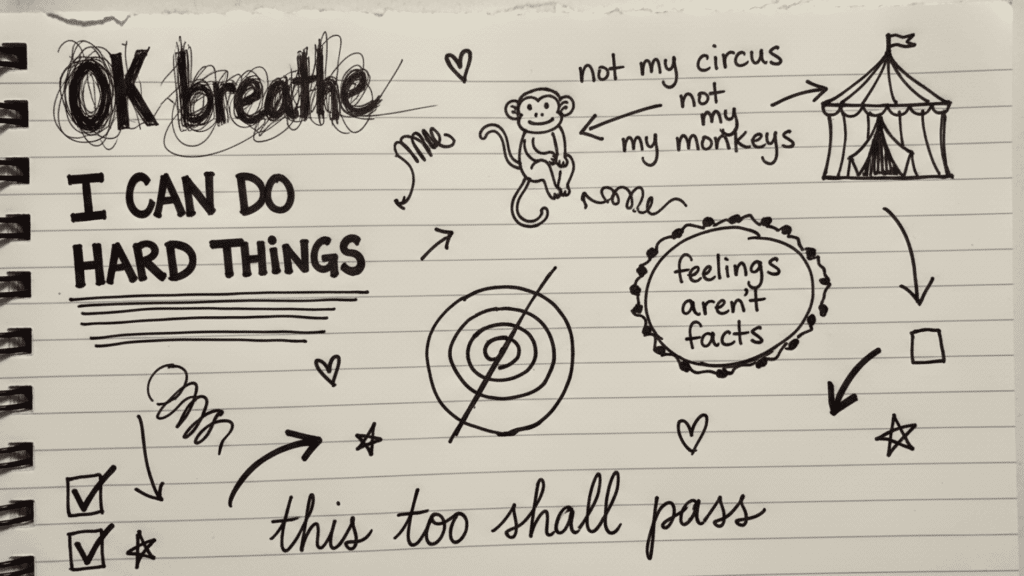 OK breathe
I CAN DO
HARD THiNGS
not my circus
not
my
my monkeys
feelings
aren't
facts
this too shall pass